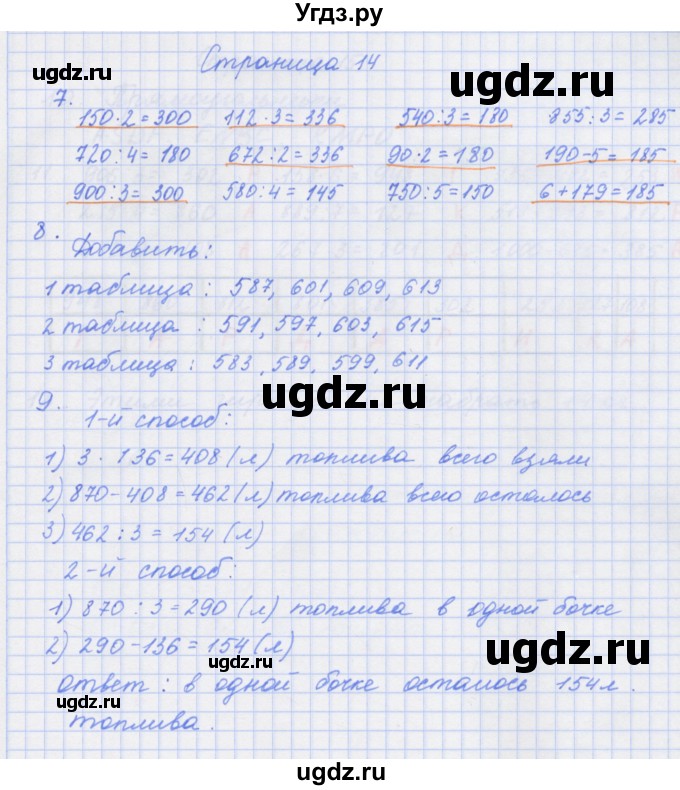 Угдз.ру
Страница 14
7.
150·2=300 112·3=336 540:3=180 855:3=285
720:4=180 672:2=336 90·2=180 190-5=185
900:3=300 580:4=145 750:5=150 6+179=185
8.
Добавить:
1 таблица: 587, 601, 609, 613
2 таблица: 591, 597, 603, 615
3 таблица: 583, 589, 599, 611
9.
1-й способ:
1) 3·136=408(л) топлива всего взяли
2) 870-408=462(л) топлива всего осталось
3) 462:3=154(л)
2-й способ:
1) 870:3=290(л) топлива в одной бочке
2) 290-136=154(л)
Ответ: в одной бочке осталось 154л.
топлива.
ugdz.ru
ugdz.ru
ugdz.ru
ugdz.ru
ugdz.ru
ugdz.ru
ugdz.ru
ugdz.ru
ugdz.ru
ugdz.ru
ugdz.ru
ugdz.ru
ugdz.ru
ugdz.ru